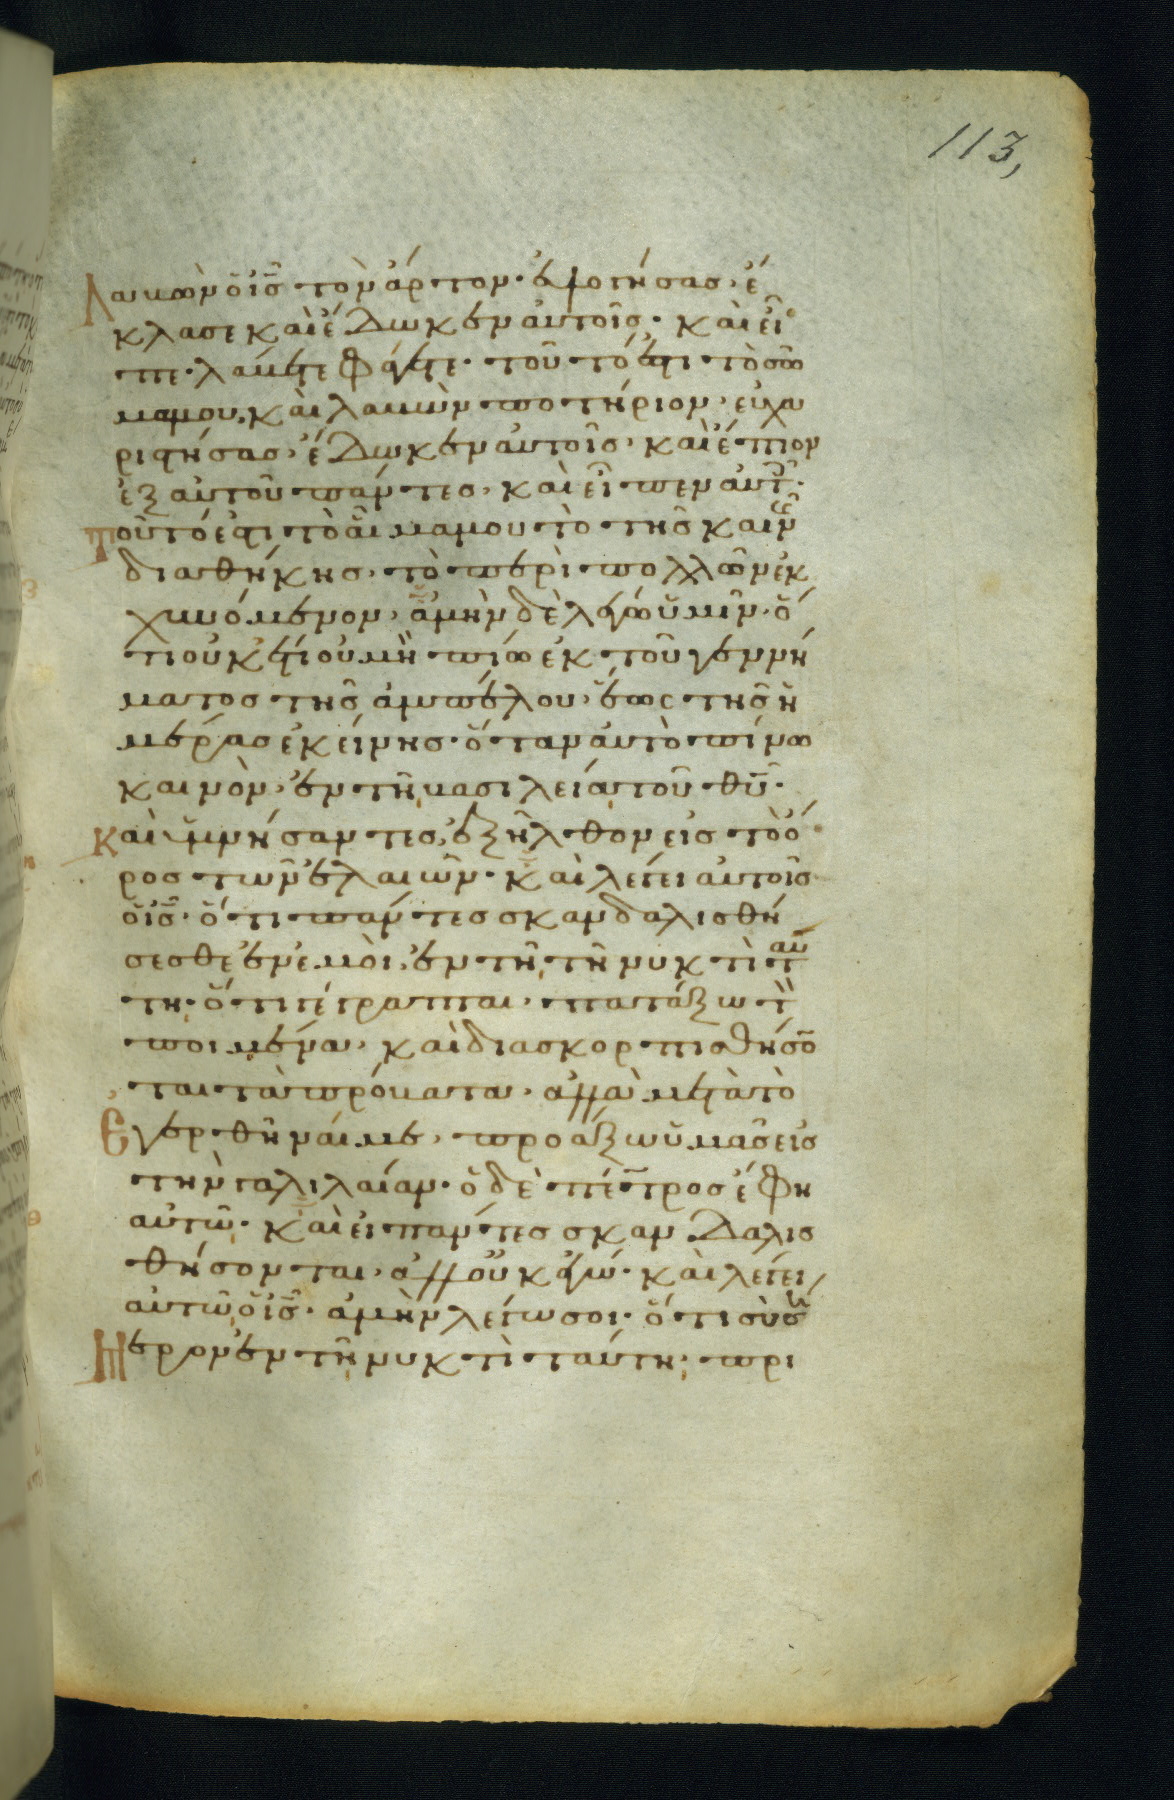 113,
Λαβὼν ὁ ἰς̅ τὸν ἄρτον· εὐλογήσας, ἔ
κλασε καὶ ἔδωκεν αὐτοῖς· καὶ εἶ
πε· λάβετε φάγετε· τοῦτό ἐστι τὸ σῶ
μα μου, καὶ λαβὼν ποτήριον, εὐχα
ριστήσας, ἔδωκεν αὐτοῖς, καὶ ἔπιον
ἐξ αὐτοῦ πάντες, καὶ εἶπεν αὐτοῖς·
Τοῦτό ἐστι τὸ αἷμα μου τὸ τῆς καινῆς
διαθήκης, τὸ περὶ πολλῶν ἐκ
χυνόμενον, ἀμὴν δὲ λέγω ὑμῖν· ὅ
τι οὐκέτι οὐ μὴ πίω ἐκ τοῦ γεννή
ματος τῆς ἀμπέλου, ἕως τῆς ἡ
μέρας ἐκείνης· ὅταν αὐτὸ πίνω
καινὸν, ἐν τῇ βασιλείᾳ τοῦ θυ̅·
Καὶ ὑμνήσαντες, ἐξῆλθον εἰς τὸ ὄ
ρος τῶν ἐλαιῶν· καὶ λέγει αὐτοῖς
ὁ ἰς̅· ὅτι πάντες σκανδαλισθή
σεσθε ἐν ἐμοὶ, ἐν τῇ νυκτὶ ταύ
τῃ· ὅτι γέγραπται, πατάξω τὸν
ποιμένα, καὶ διασκορπισθήσον
ται τὰ πρόβατα, ἀλλὰ μετὰ τὸ
Ἐγερθῆναί με, προάξω ὑμᾶς εἰς
τὴν γαλιλαίαν· ὁ δὲ πέτρος ἔφη
αὐτῷ· καὶ εἰ πάντες σκανδαλισ
θήσονται, ἀλλ' οὐκ ἐγώ· καὶ λέγει
αὐτῷ ὁ ἰς̅· ἀμὴν λέγω σοι· ὅτι σὺ σή
Μερον ἐν τῇ νυκτὶ ταύτῃ· πρι